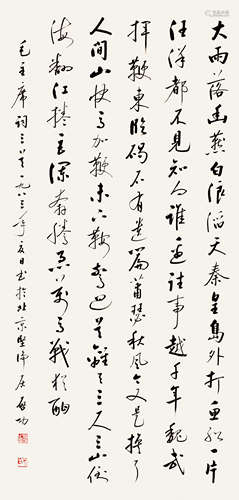 大雨落幽燕白浪滔天秦皇島外打魚船一片
汪洋都不見知向誰邊往事越千年魏武
揮鞭東臨碣石有遺篇蕭瑟秋風今又是換了
人間山快馬加鞭未下鞍驚回首離天三尺三山倒
海翻江捲巨瀾奔騰急萬馬戰猶酣
毛主席詞三首一九八三年夏日書於北京堅淨居啟功